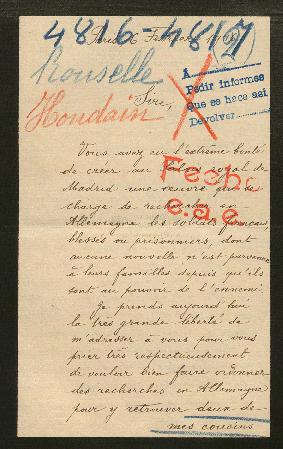 4816-4817
Février
Rouselle
A
Pedir informes
Que se haga así
Devolver
Houdain
Sire,
Vous avez eu l'extrême bonté
de créer au palais royal de
Madrid une œuvre qui se
charge de rechercher en
Allemagne les soldats français,
blessés ou prisonniers, dont
aucune nouvelle n'est parvenue
à leurs familles depuis qu'ils
sont au pouvoir de l'ennemi.
Je prends aujourd'hui
la très grande liberté de
m'adresser à vous pour vous
prier très respectueusement
de vouloir bien faire ordonner
des recherches en Allemagne
pour y retrouver deux de
mes cousins
Fech.
e.a.e.